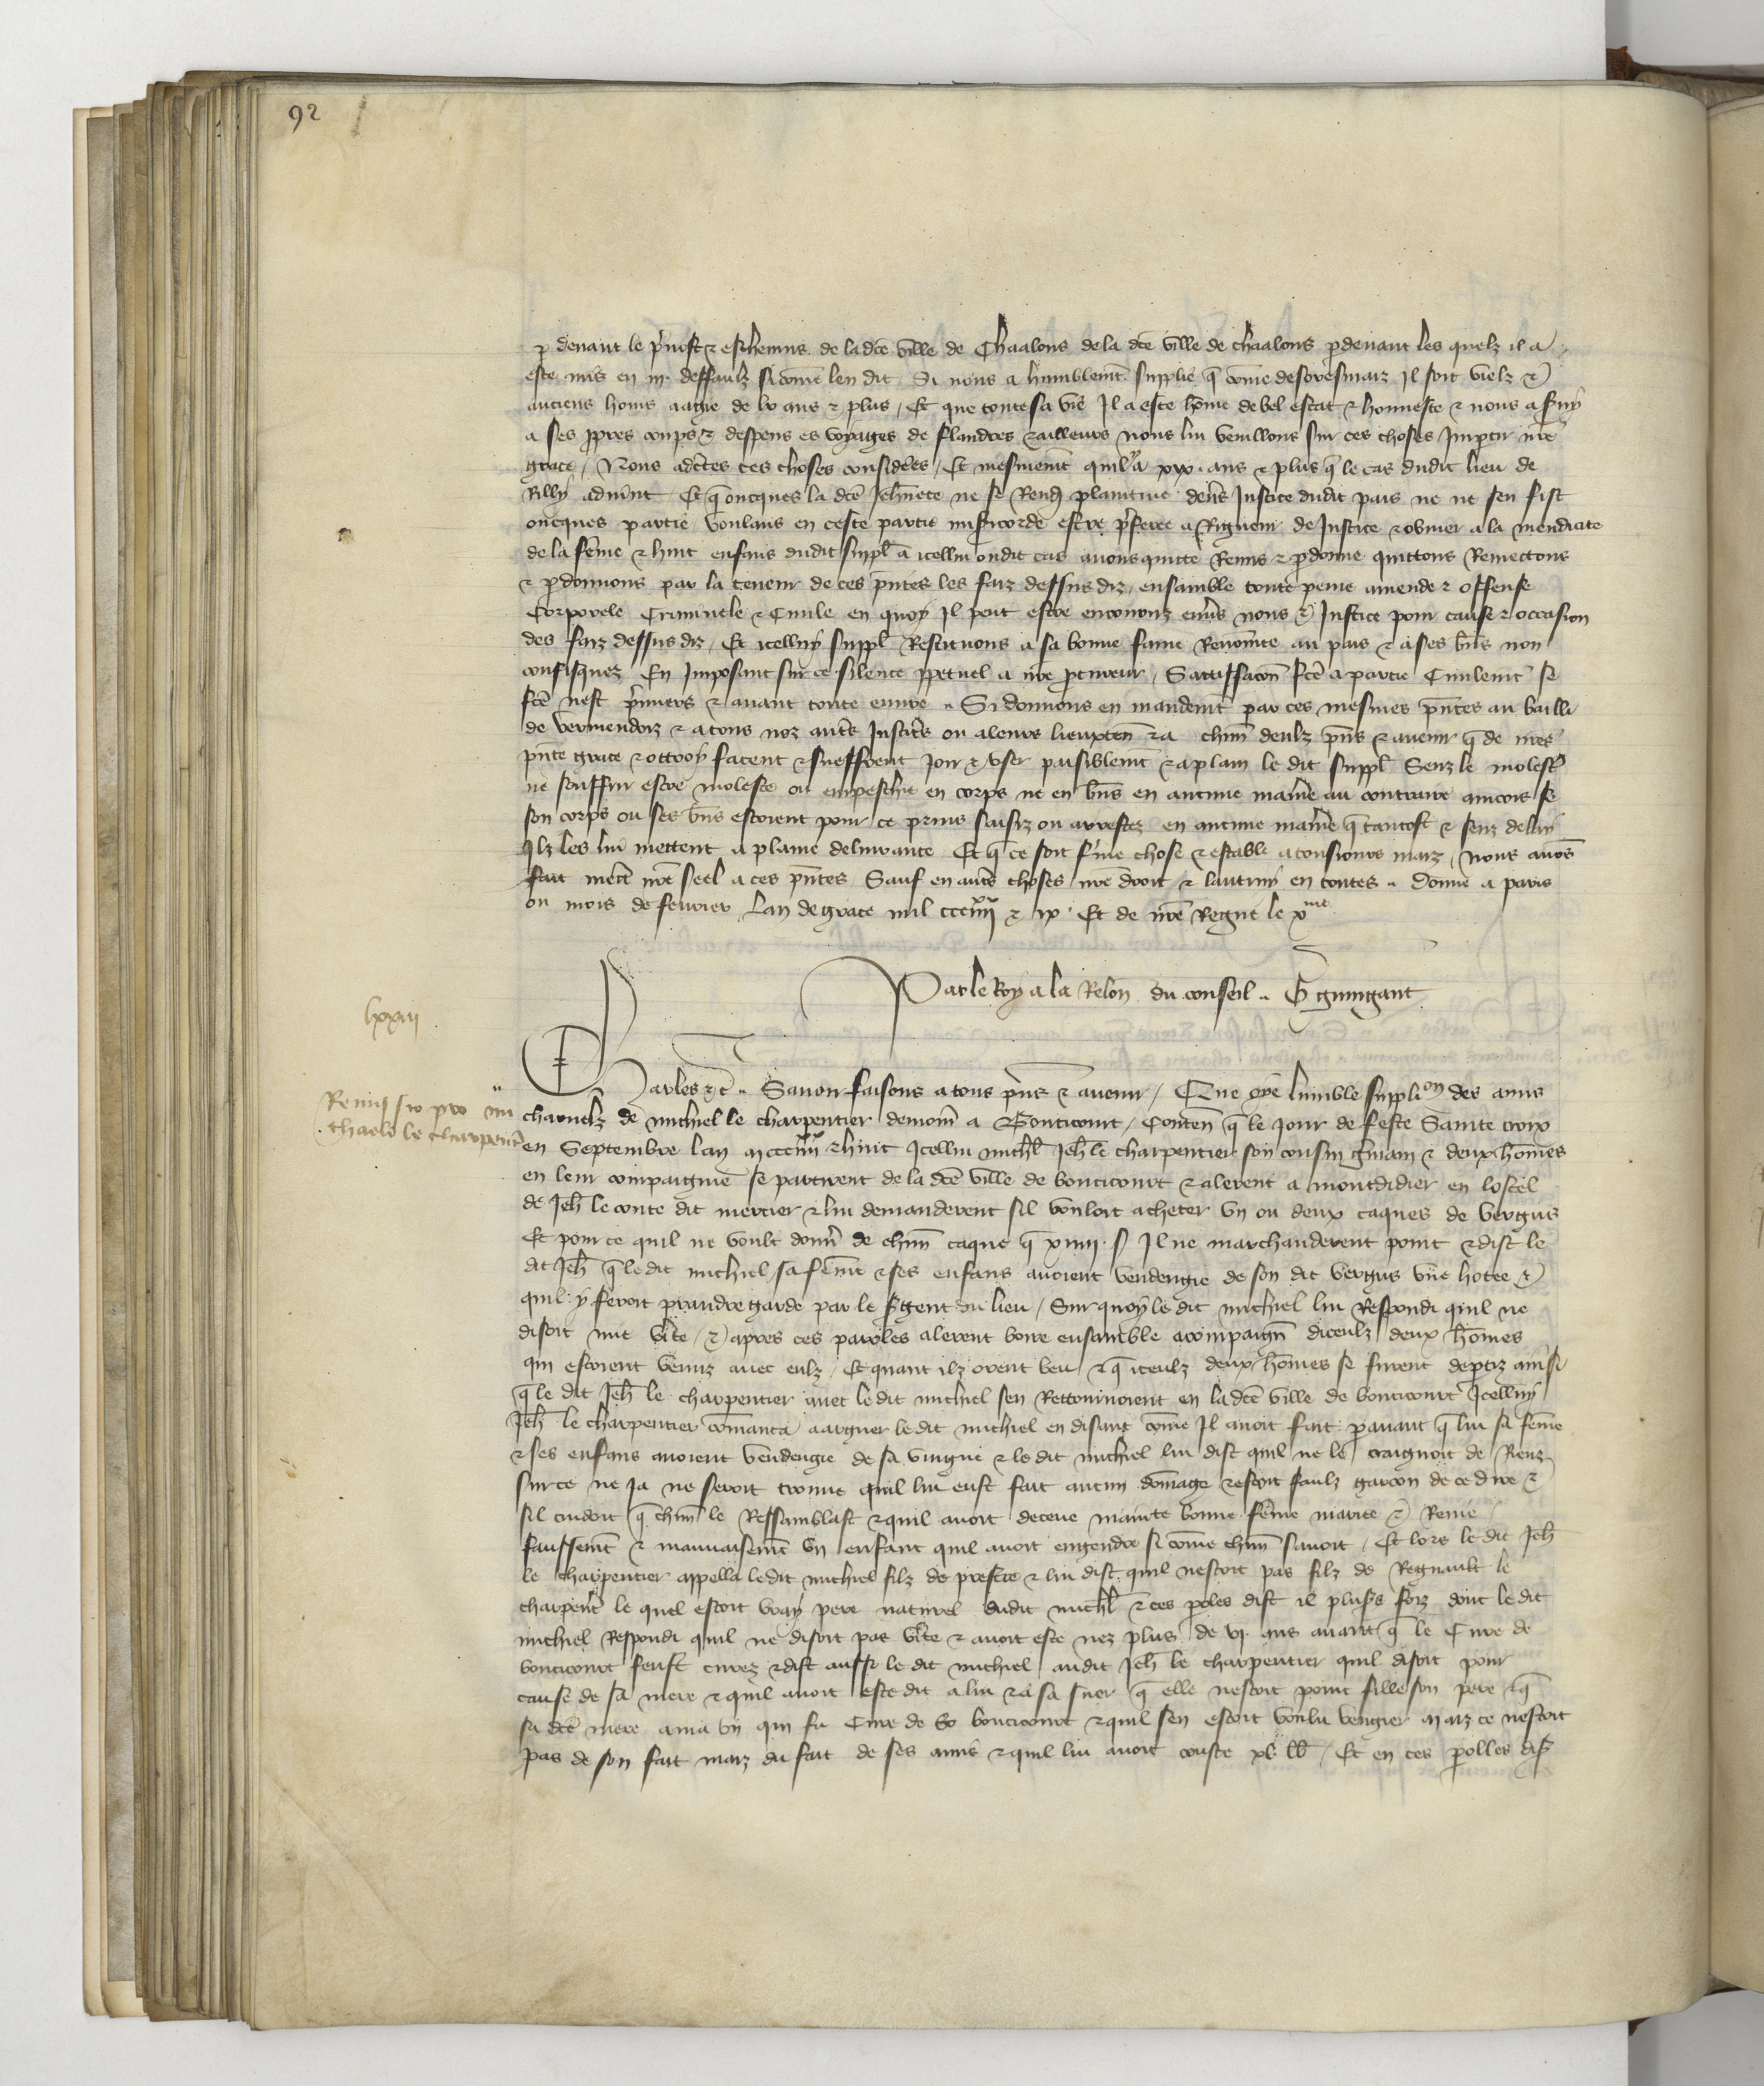 92
p devant le p̃vost & eschevins de la dc̃e ville de Chaalons de la dc̃e ville de chaalons p devant les quelz il a
este mis en iij deffaulz si com̃e len dit. Si nous a humblemt̃ supplie q̃ com̃e desoresmaiz Il soit vielz &
anciens homs aagie de lv ans & plus / Et que toute sa vie Il a este hõme de bel estat & honneste & nous a s̃vy
a ses ppres coups & despens es voyages de flandres & ailleurs nous lui veuillons sur ces choses Impartir nr̃e
grace / Nous adc̃tes ces choses considẽes / Et mesmemt̃ quil a xix ans & plus q̃ le cas dudit lieu de
Rilly advint Et q̃ oncques la dc̃e Jehñete ne se Rendy plaintive dev̾s Justice dudit pais ne ne sen fist
oncques partie voulans en ceste partie misericorde estre p̃feree a Rigueur de Justice & obvier a la mendicite
de la fẽme & huit enfans dudit suppl̃ a icellui ondit cas avons quitte Remis & pdonne quittons Remettons
& pdonnons par la teneur de ces p̃ntes les faiz dessus diz ensamble toute peine amende & offense
Corporele Criminele & Civile en quoy Il peut estre encouruz env̾s nous & Justice pour cause & occasion
des faiz dessus diz / Et icelluy suppl̃ Restituons a sa bonne fame Renom̃ee au pais & a ses bñs non
confisquez En Imposant sur ce silence ppetuel a nr̃e pcureur / Sattiffacõn fc̃e a partie Civilemt̃ se
fc̃e nest p̃miers & avant toute euvre .. Si donnons en mandemt̃ par ces mesmes p̃ntes au bailli
de vermendoiz & a tous noz autr̃s Justic̃rs ou a leurs lieuxten̄ & a chũn deulz p̃ns & avenir q̃ de nr̃e
p̃nte grace & ottroy facent & sueffrent Joir & user paisiblemt̃ & a plain le dit suppl̃ Senz le molest̃
ne souffrir estre moleste ou empeschie en corps ne en bñs en aucune manie᷑ au contraire aincois se
son corps ou ses bñs estoient pour ce prins saisiz ou arrestez en aucune manie᷑ q̃ tantost & senz delay
Ilz les lui mettent a plaine delivrance Et q̃ ce soit fẽme chose & estable a tousiours maiz / Nous avõs
fait mett̃ nr̃e seel a ces p̃ntes Sauf en autr̃s choses nr̃e droit & lautruy en toutes .. Donne a paris
ou mois de fevrier Lan de grace mil ccc iiijxx & ix Et de nr̃e Regne le xme
Par le Roy a la Relon̄ du conseil .. G guingant
lxxiij
Charles &c̃ .. Savoir faisons a tous p̃ns & avenir / Que oye lumble supplion des amis
Remissio pro mi
chaele le charpentĩ
charnelz de michiel le charpentier demour̃ a Bouticourt / Conten̄ q̃ le Jour de feste Sainte croix
en Septembre lan m ccc iiijxx & huit Icellui michl̃ Jeh̃ le charpentier son cousin g̃main & deux hõmes
en leur compaignie se partirent de la dc̃e ville de bouticourt & alerent a montdidier en lostel
de Jeh̃ le conte dit mercier & lui demanderent sil vouloit acheter un ou deux caques de vergus
Et pour ce quil ne voult donñ de chũn caque q̃ xiiij s Il ne marchanderent point & dist le
dit Jeh̃ q̃ le dit michiel sa fẽme & ses enfans avoient vendengie de son dit vergus une hotee &
quil y feroit prandre garde par le s̃gent du lieu / Sur quoy le dit michiel lui Respondi quil ne
disoit mie v̾ite / & apres ces paroles alerent boire ensamble acompaign̄ diceulz deux hõmes
qui estoient venuz avec eulz / Et quant ilz orent beu & q̃ iceulz deux hõmes se furent deptiz ainsi
q̃ le dit Jeh̃ le charpentier avec le dit michiel sen Rettournoient en la dc̃e ville de bouticourt Icelluy
Jeh̃ le charpentier cõmanca a arguer le dit michiel en disant com̃e Il avoit fait pavant q̃ lui sa fẽme
& ses enfans avoient vendengie de sa vingne & le dit michiel lui dist quil ne le craignoit de Rienz
sur ce ne ja ne seroit trouve quil lui eust fait aucun dõmage & estoit faulz garcon de ce dire &
sil cuidoit q̃ chũn le Ressamblast & quil avoit deceue mainte bonne fẽme mariee & Renie
faussemt̃ & mauvaisemt̃ un enfant quil avoit engendre si com̃e chũn savoit / Et lors le dit Jeh̃
le charpentier appella le dit michiel filz de prestre & lui dist quil nestoit pas filz de Regnault le
charpent̃ le quel estoit vray pere naturel dudit michl̃ & ces poles dist il plus̾s foiz dont le dit
michiel Respondi quil ne disoit pas v̾ite & avoit este nez plus de vj ans avant q̃ le Cure de
bouticourt feust curez & dist aussi le dit michiel audit Jeh̃ le charpentier quil disoit pour
cause de sa mere & quil avoit este dit a lui & a sa suer q̃ elle nestoit point fille son pere & q̃
sa dc̃e mere ama un qui fu Cure de bouticourt & quil sen estoit voulu vengier maiz ce nestoit
pas de son fait maiz du fait de ses amis & quil lui avoit couste xl lb̃ / Et en ces polles dis̃